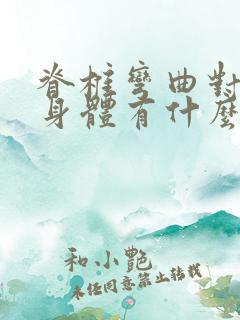 脊柱彎曲對
身體有什麼
和小艷
未经同意禁止转载